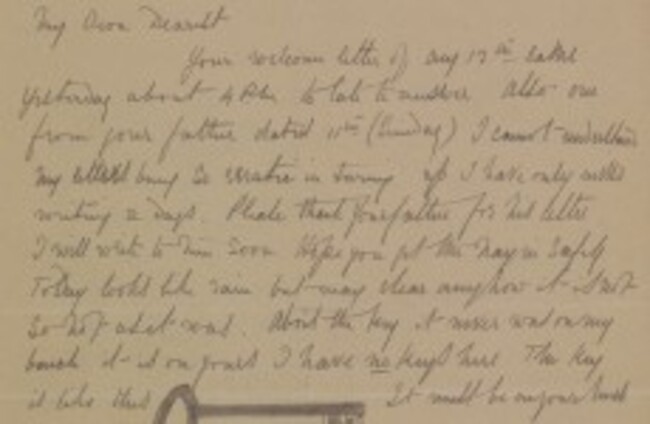 My Own Dearest
Your welcome letter of Aug 17th came
Yesterday about 4 PM to late to answer Also one
from your father dated 11th (Sunday) I cannot understand
my letters being so erratic in turning up I have only missed
writing 2 days. Please thank your father for his letter
I will write to him soon Hope you got the hay in safely
Today looks like rain but may clear anyhow it is not
so hot as it was. About the key it never was on my
bunch it is on yours I have no keys here The key
is like this It must be on your bunch